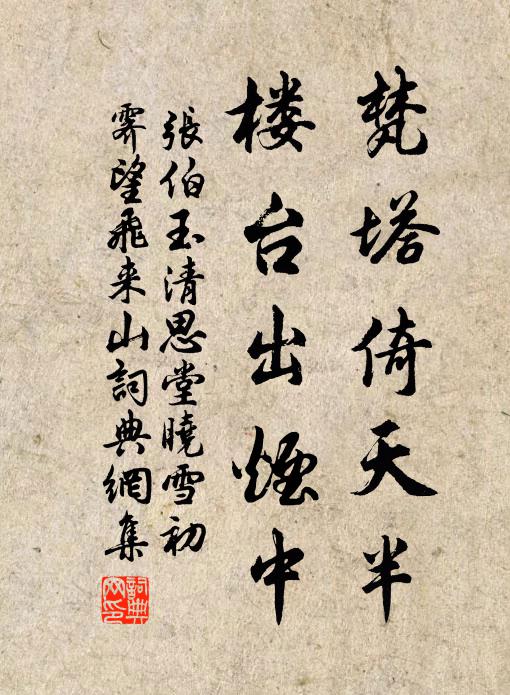 梵塔倚天半
楼台出煙中
張伯玉清思堂曉雪初
霽望飛来山詞典網集